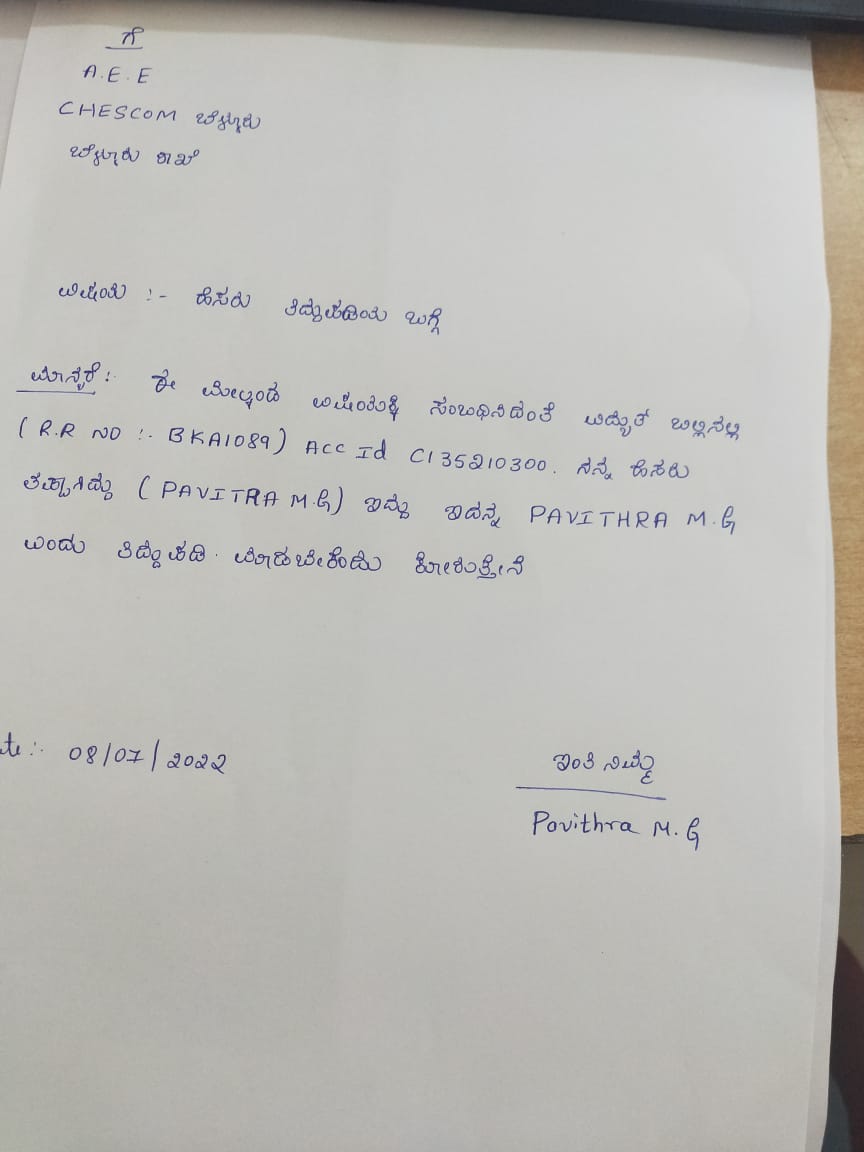 ಗೆ
A.E.E
CHESCOM ಬೆಳ್ಳೂರು
ಬೆಳ್ಳೂರು ಶಾಖೆ
ವಿಷಯ :- ಹೆಸರು ತಿದ್ದುಪಡಿಯ ಬಗ್ಗೆ
ಮಾನ್ಯರೆ: ಈ ಮೇಲ್ಕಂಡ ವಿಷಯಕ್ಕೆ ಸಂಬಂಧಿಸಿದಂತೆ ವಿದ್ಯುತ್ ಬಿಲ್ಲಿನಲ್ಲಿ
(R.R NO :- BKA1089) Acc Id C135210300. ನನ್ನ ಹೆಸರು
ತಪ್ಪಾಗಿದ್ದು (PAVITRA M.G) ಇದ್ದು ಇದನ್ನು PAVITHRA M.G
ಎಂದು ತಿದ್ದುಪಡಿ ಮಾಡಬೇಕೆಂದು ಕೋರುತ್ತೇನೆ
08/07/2022
ಇಂತಿ ನಿಮ್ಮ
Pavithra M.G